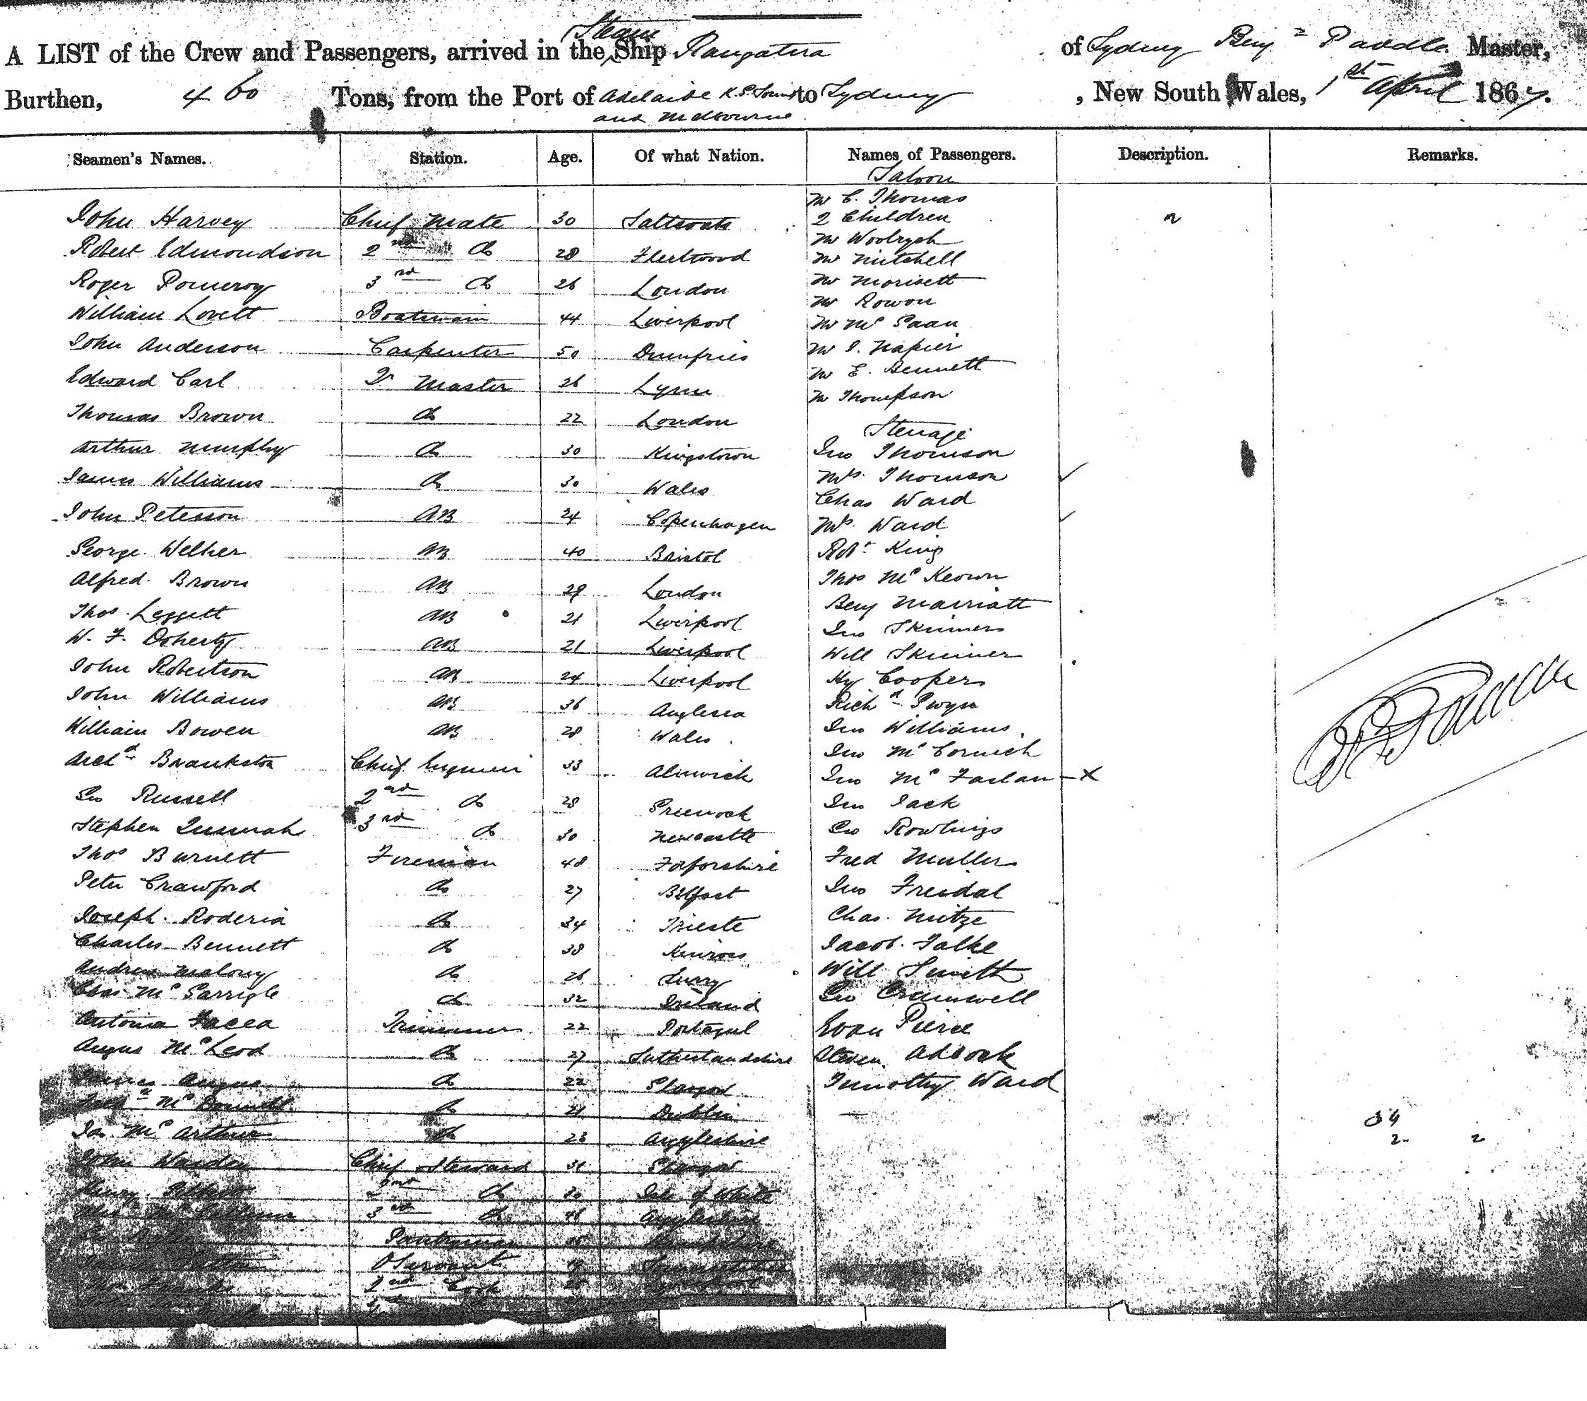 A LIST of the Crew and Passengers, arrived in the Steam Ship Rangatira of Sydney Benj Paddle Master,
Burthen, 460 Tons, from the Port of Adelaide K.G. Sound and Melbourne to Sydney, New South Wales, 1st April 1867.
Seamen's Names. Station. Age. Of what Nation. Names of Passengers. Description. Remarks.
John Harvey Chief Mate 30 Saltcoats
Robert Edmondson 2nd Do 28 Fleetwood
Roger Pomeroy 3rd Do 26 London
William Lovett Boatswain 44 Liverpool
John Anderson Carpenter 50 Dumfries
Edward Carl Qr Master 26 Lynn
Thomas Brown Do 22 London
Arthur Murphy Do 30 Kingstown
James Williams Do 30 Wales
John Peterson AB 24 Copenhagen
George Welher AB 40 Bristol
Alfred Brown AB 29 London
Thos Leggett AB 21 Liverpool
W. F. Doherty AB 21 Liverpool
John Robertson AB 24 Liverpool
John Williams AB 36 Anglesea
William Bowen AB 28 Wales
Archd Brankston Chief Engineer 33 Alnwick
Geo Russell 2nd Do 28 Greenock
Stephen 3rd Do 30 Newcastle
Thos Burnett Fireman 48 Forfarshire
Peter Crawford Do 27 Belfast
Joseph Roderia Do 34 Trieste
Charles Bennett Do 38 Kinross
Andrew Malony Do 26
Chas McGarrigle Do 32 Ireland
Antonia Facea Trimmer 22 Portugal
Angus McLeod Do 27 Sutherlandshire
James Angus Do 22 Glasgow
McDonnell Do 21 Dublin
Ja McArthur Do 23 Argyleshire
John Wardon Chief Steward 31 Glasgow
Henry 2nd Do 30 Isle of White
3rd Do Argyleshire
Pantryman
Servant
2nd Cook
Saloon
Mr C. Thomas
2 Children
Mr Woolrych
Mr Mitchell
Mr Morisett
Mr Rowon
Mr
Mr J. Napier
Mr E. Bennett
Mr Thompson
Steerage
Jno Thomson
Mrs Thomson
Chas Ward
Mrs Ward
Robt King
Thos McKeown
Benj Marriott
Jno Skinners
Will Skinner
Hy Coopers
Richd Gwyn
Jno Williams
Jno McCormick
Jno McFarlan x
Jno Jack
Geo Rowlings
Fred Muller
Jno Freidal
Chas. Mitze
Jacob Falke
Will Smith
Geo Cramwell
Evan Pierce
Steven Adcock
Timothy Ward
34
2 2